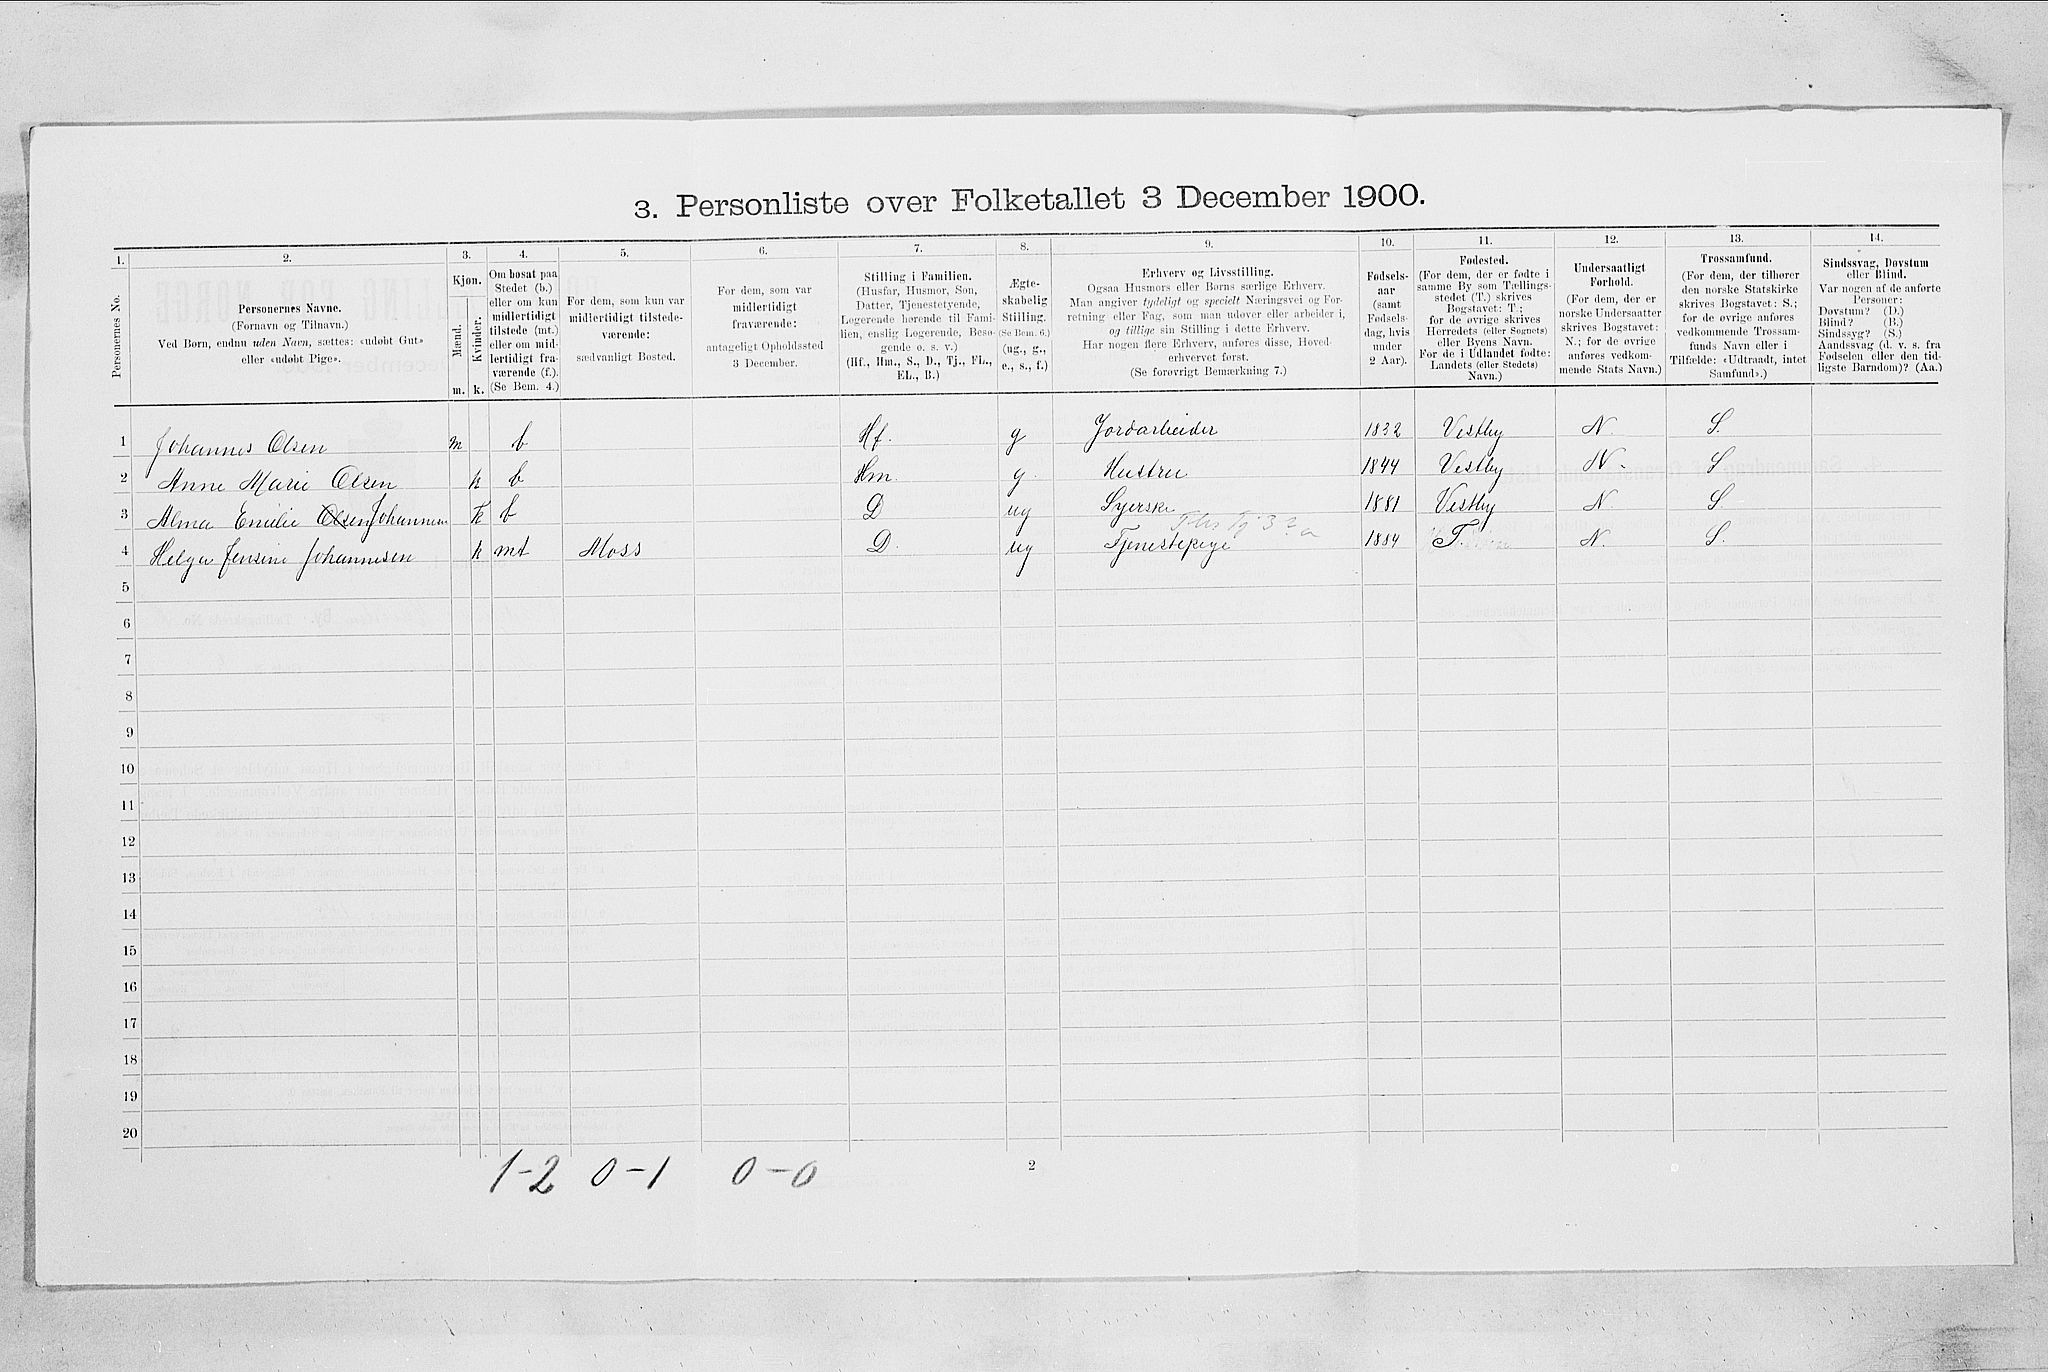 3. Personliste over Folketallet 3 December 1900.
1. 2. 3. 4. 5. 6. 7. 8. 9. 10. 11. 12. 13. 14.
Personernes No.
Personernes Navne.
(Fornavn og Tilnavn.)
Ved Børn, endnu uden Navn, sættes: «udøbt Gut»
eller «udøbt Pige».
Kjøn.
Mænd.
Kvinder.
m. k.
Om bosat paa
Stedet (b.)
eller om kun
midlertidigt
tilstede (mt.)
eller om mid-
lertidigt fra-
værende (f.).
(Se Bem. 4.)
For dem, som kun var
midlertidigt tilstede-
værende:
sædvanligt Bosted.
For dem, som var
midlertidigt
fraværende:
antageligt Opholdssted
3 December.
Stilling i Familien.
(Husfar, Husmor, Søn,
Datter, Tjenestetyende,
Logerende hørende til Fami-
lien, enslig Logerende, Besø-
gende o. s. v.)
(Hf., Hm., S., D., Tj., FL.,
EL., B.)
Ægte-
skabelig
Stilling.
(Se Bem. 6.)
(ug., g.,
e., s., f.)
Erhverv og Livsstilling.
Ogsaa Husmors eller Børns særlige Erhverv.
Man angiver tydeligt og specielt Næringsvei og For-
retning eller Fag, som man udøver eller arbeider i,
og tillige sin Stilling i dette Erhverv.
Har nogen flere Erhverv, anføres disse, Hoved-
erhvervet først.
(Se forøvrigt Bemærkning 7.)
Fødsels-
aar
(samt
Fødsels-
dag, hvis
under
2 Aar).
Fødested.
(For dem, der er fødte i
samme By som Tællings-
stedet (T.) skrives
Bogstavet: T.;
for de øvrige skrives
Herredets (eller Sognets)
eller Byens Navn.
For de i Udlandet fødte:
Landets (eller Stedets)
Navn.)
Undersaatligt
Forhold.
(For dem, der er
norske Undersaatter
skrives Bogstavet:
N.; for de øvrige
anføres vedkom-
mende Stats Navn.)
Trossamfund.
(For dem, der tilhører
den norske Statskirke
skrives Bogstavet: S.;
for de øvrige anføres
vedkommende Trossam-
funds Navn eller i
Tilfælde: «Udtraadt, intet
Samfund».)
Sindssvag, Døvstum
eller Blind.
Var nogen af de anførte
Personer:
Døvstum? (D.)
Blind? (B.)
Sindssyg? (S.)
Aandssvag (d. v. s. fra
Fødselen eller den tid-
ligste Barndom)? (Aa.)
1 Johannes Olsen m b Hf. g Jordarbeider 1832 Vestby N. S.
2 Anne Marie Olsen k b Hm. g. Hustru 1844 Vestby N. S
3 Alma Emilie Olsen Johannesen k b D ug Syerske 1881 Vestby N. S.
4 Helga Jensine Johannesen k mt Moss D. ug Tjenestepige 1884 T. N. S.
5
6
7
8
9
10
11
12
13
14
15
16
17
18
19
20
1-2 0-1 0-0
2